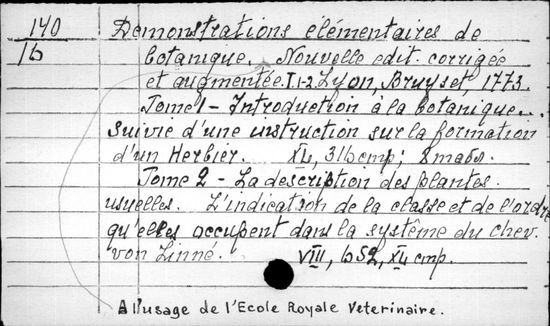 140
16
Demonstrations elémentaires de
botanique. Nouvelle edit. corrigée
et augmentée. T.1-2. Lyon, Bruyset, 1773.
Tome 1 - Introduction à la botanique...
Suivie d'une instruction sur la formation
d'un Herbier. XL, 316 стр; 8 табл.
Tome 2 - La description des plantes
usuelles. L'indication de la classe et de l'ordre
qu'elles occupent dans la système du chev.
von Linné. VIII, 652, XII стр.
A l'usage de l'Ecole Royale Veterinaire.